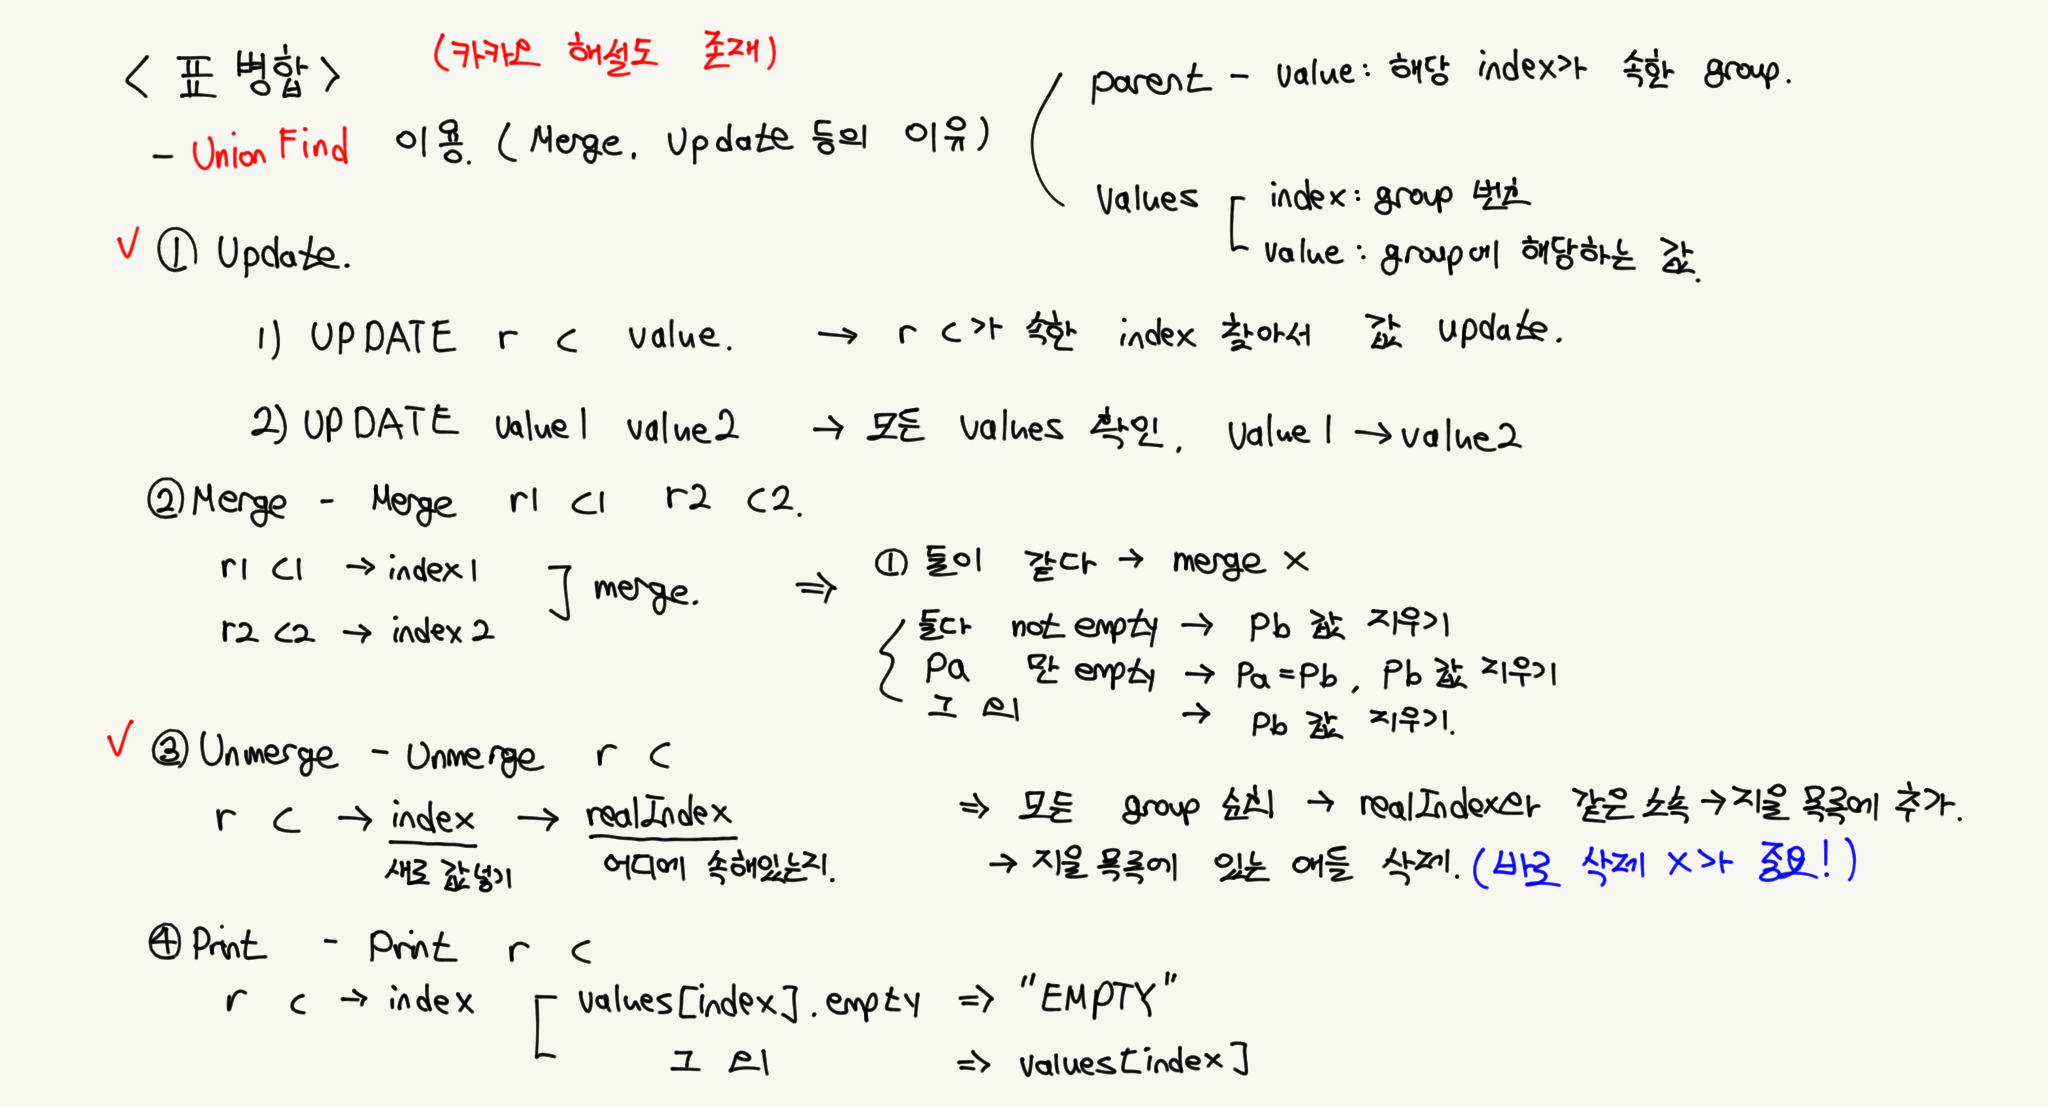 < 표 병합 > (카카오 해설도 존재)
- Union Find 이용. (Merge, Update 등의 이유)
parent - value : 해당 index가 속한 group.
Values [ index : group 번호
value : group에 해당하는 값.
✓ ① Update.
1) UPDATE r c value. → r c가 속한 index 찾아서 값 update.
2) UPDATE value1 value2 → 모든 values 확인, value1 → value2
② Merge - Merge r1 c1 r2 c2.
r1 c1 → index1
r2 c2 → index2
] merge. ⇒ ① 둘이 같다 → merge x
{ 둘다 not empty → Pb 값 지우기
Pa 만 empty → Pa = Pb, Pb 값 지우기
그 외 → Pb 값 지우기.
✓ ③ Unmerge - Unmerge r c
r c → index → realIndex ⇒ 모든 group 순회 → realIndex와 같은 소속 → 지울 목록에 추가.
새로 값 넣기 어디에 속해있는지. → 지울 목록에 있는 애들 삭제. (바로 삭제 x가 중요!)
④ Print - Print r c
r c → index [ values[index].empty ⇒ "EMPTY"
그 외 ⇒ values[index]